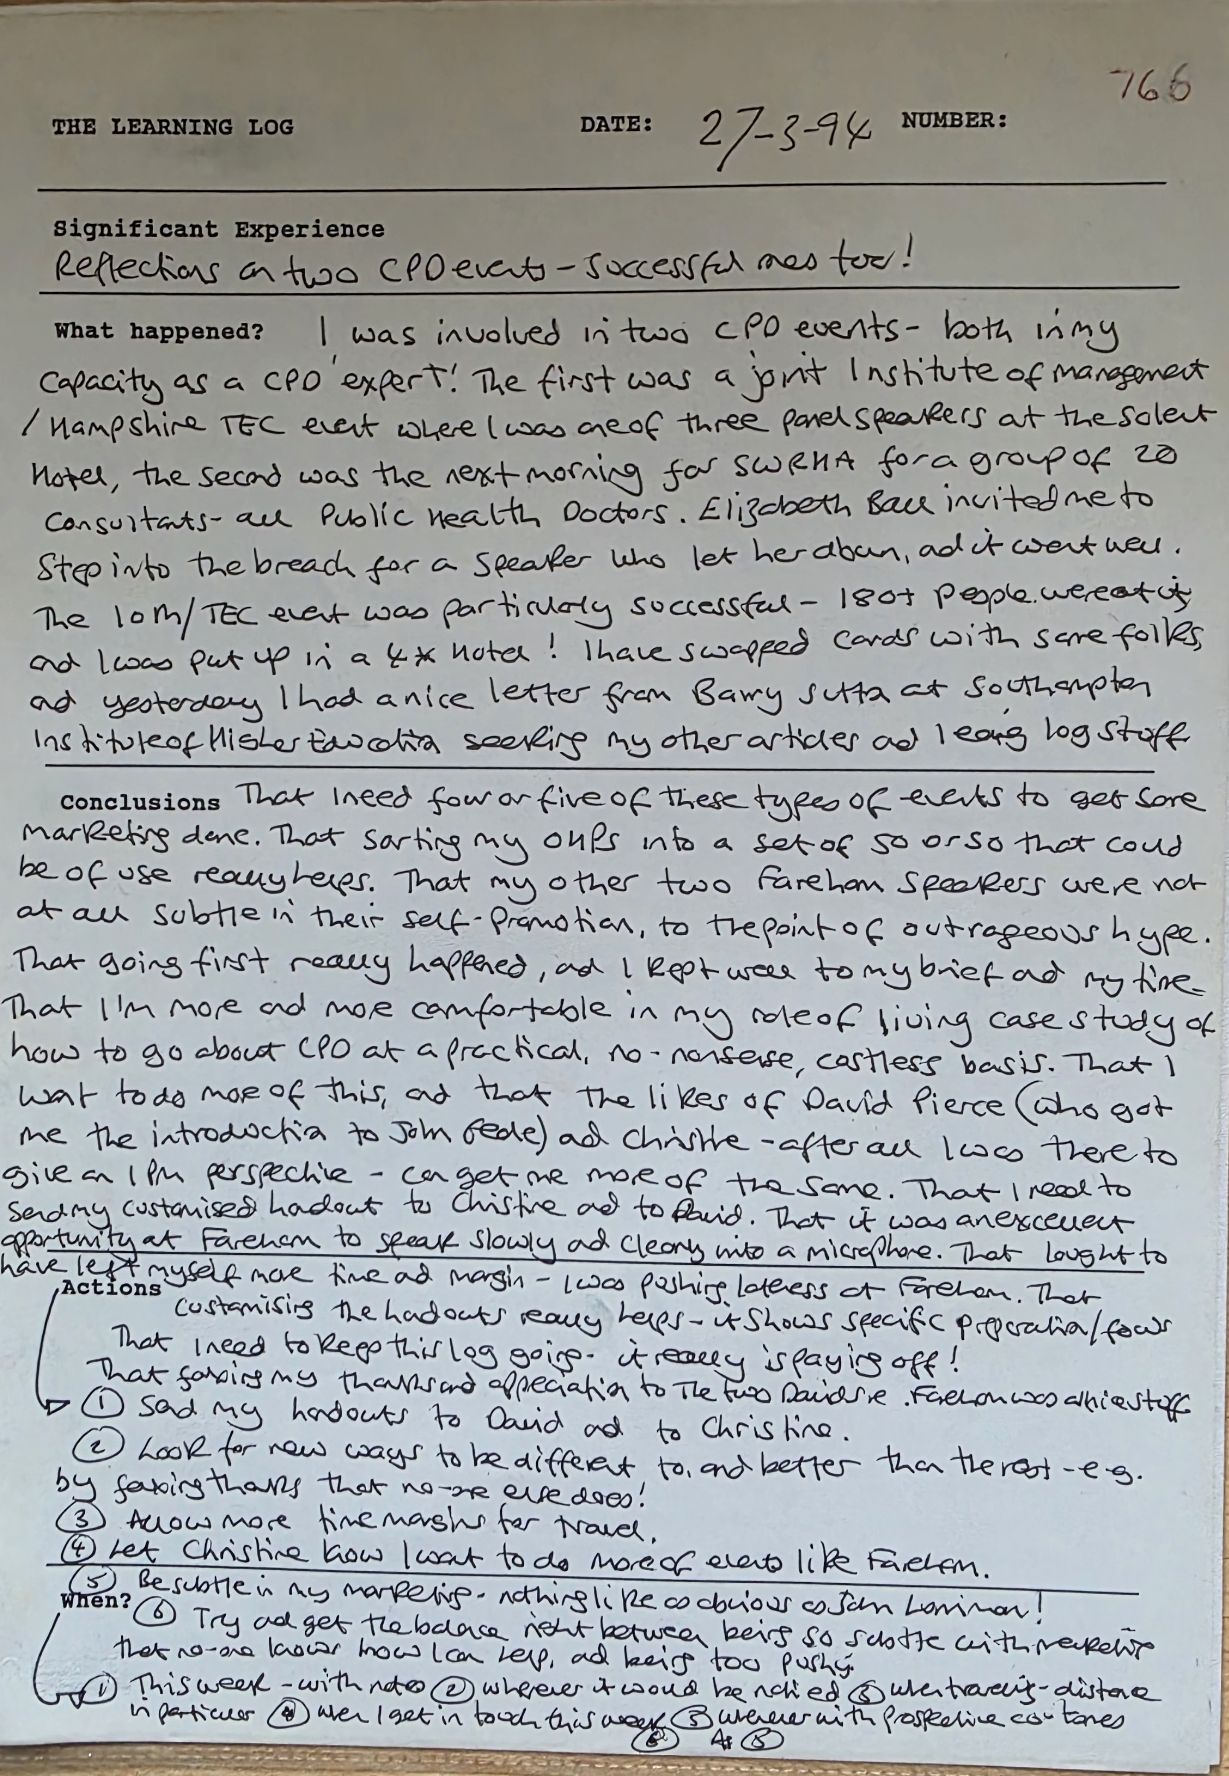 766
THE LEARNING LOG DATE: 27-3-94 NUMBER:
Significant Experience
Reflections on two CPD events - successful ones too!
What happened? I was involved in two CPD events - both in my
capacity as a CPD 'expert'! The first was a joint Institute of management
/ Hampshire TEC event where I was one of three panel speakers at the Solent
Hotel, the second was the next morning for SWRHA for a group of 20
Consultants - all Public Health Doctors. Elizabeth Ball invited me to
step into the breach for a speaker who let her down, and it went well.
The IOM/TEC event was particularly successful - 180+ people were at it,
and I was put up in a 4* Hotel! I have swapped cards with some folks,
and yesterday I had a nice letter from Barry at Southampton
Institute of Higher Education seeking my other articles and learning log stuff
Conclusions That I need four or five of these types of events to get some
marketing done. That sorting my OHPs into a set of 50 or so that could
be of use really helps. That my other two Fareham speakers were not
at all subtle in their self-promotion, to the point of outrageous hype.
That going first really happened, and I kept well to my brief and my time.
That I'm more and more comfortable in my role of living case study of
how to go about CPD at a practical, no-nonsense, costless basis. That I
want to do more of this, and that the likes of David Pierce (who got
me the introduction to John Gede) and Christine - after all I was there to
give an IPM perspective - can get me more of the same. That I need to
send my customised handout to Christine and to David. That it was an excellent
opportunity at Fareham to speak slowly and clearly into a microphone. That I ought to
have left myself more time and margin - I was pushing lateness at Fareham. That
Actions customising the handouts really helps - it shows specific preparation/focus
That I need to keep this log going - it really is paying off!
That faxing my thanks and appreciation to the two Davids re. Fareham was stuff
① Send my handouts to David and to Christine.
② Look for new ways to be different to, and better than the rest - e.g.
by faxing thanks that no-one else does!
③ Allow more time margins for travel.
④ Let Christine know I want to do more of events like Fareham.
⑤ Be subtle in my marketing - nothing like as obvious as John Lorriman!
When? ⑥ Try and get the balance right between being so subtle with marketing
that no-one knows how I can help, and being too pushy.
① This week - with notes ② wherever it would be noticed ③ when traveling - distance
in particular ④ when I get in touch this week ⑤ whenever with prospective customers
⑥ As ⑤